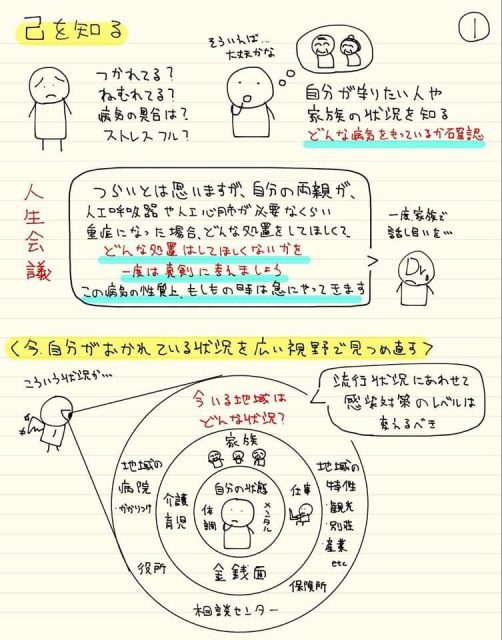 己を知る
1
つかれてる？
ねむれてる？
病気の具合は？
ストレスフル？
そういえば…
大丈夫かな
自分が守りたい人や
家族の状況を知る
どんな病気をもっているか確認
人生会議
つらいとは思いますが、自分の両親が、
人工呼吸器や人工心肺が必要なくらい
重症になった場合、どんな処置をしてほしくて、
どんな処置はしてほしくないかを
一度は真剣に考えましょう
この病気の性質上、もしもの時は急にやってきます
一度家族で
話し合いを…
Dr.
〈今、自分がおかれている状況を広い視野で見つめ直す〉
こういう状況か…
流行状況にあわせて
感染対策のレベルは
変えるべき
今いる地域は
どんな状況？
家族
自分の状態
体調
メンタル
仕事
介護
育児
金銭面
地域の
病院
・かかりつけ
役所
地域の
特性
・観光
・別荘
・産業
etc
保険所
相談センター